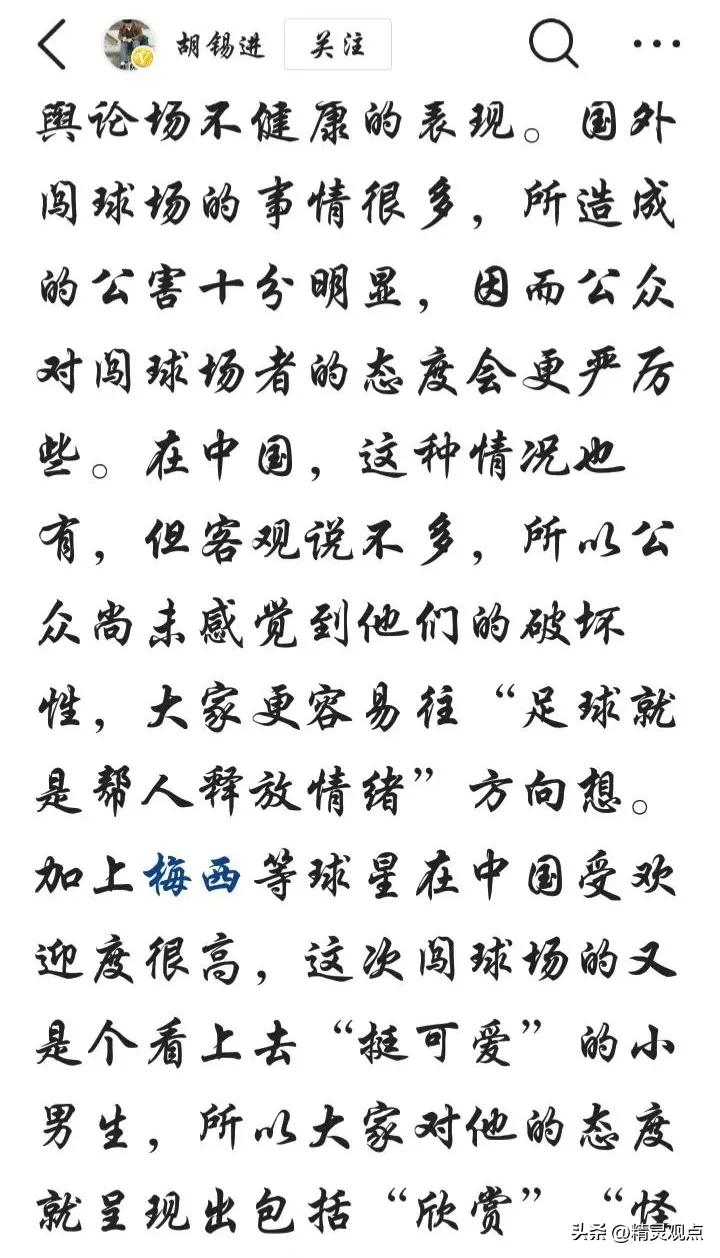 胡锡进 关注
舆论场不健康的表现。国外
闯球场的事情很多，所造成
的公害十分明显，因而公众
对闯球场者的态度会更严厉
些。在中国，这种情况也
有，但客观说不多，所以公
众尚未感觉到他们的破坏
性，大家更容易往“足球就
是帮人释放情绪”方向想。
加上梅西等球星在中国受欢
迎度很高，这次闯球场的又
是个看上去“挺可爱”的小
男生，所以大家对他的态度
就呈现出包括“欣赏”“怪
头条 @精灵观点